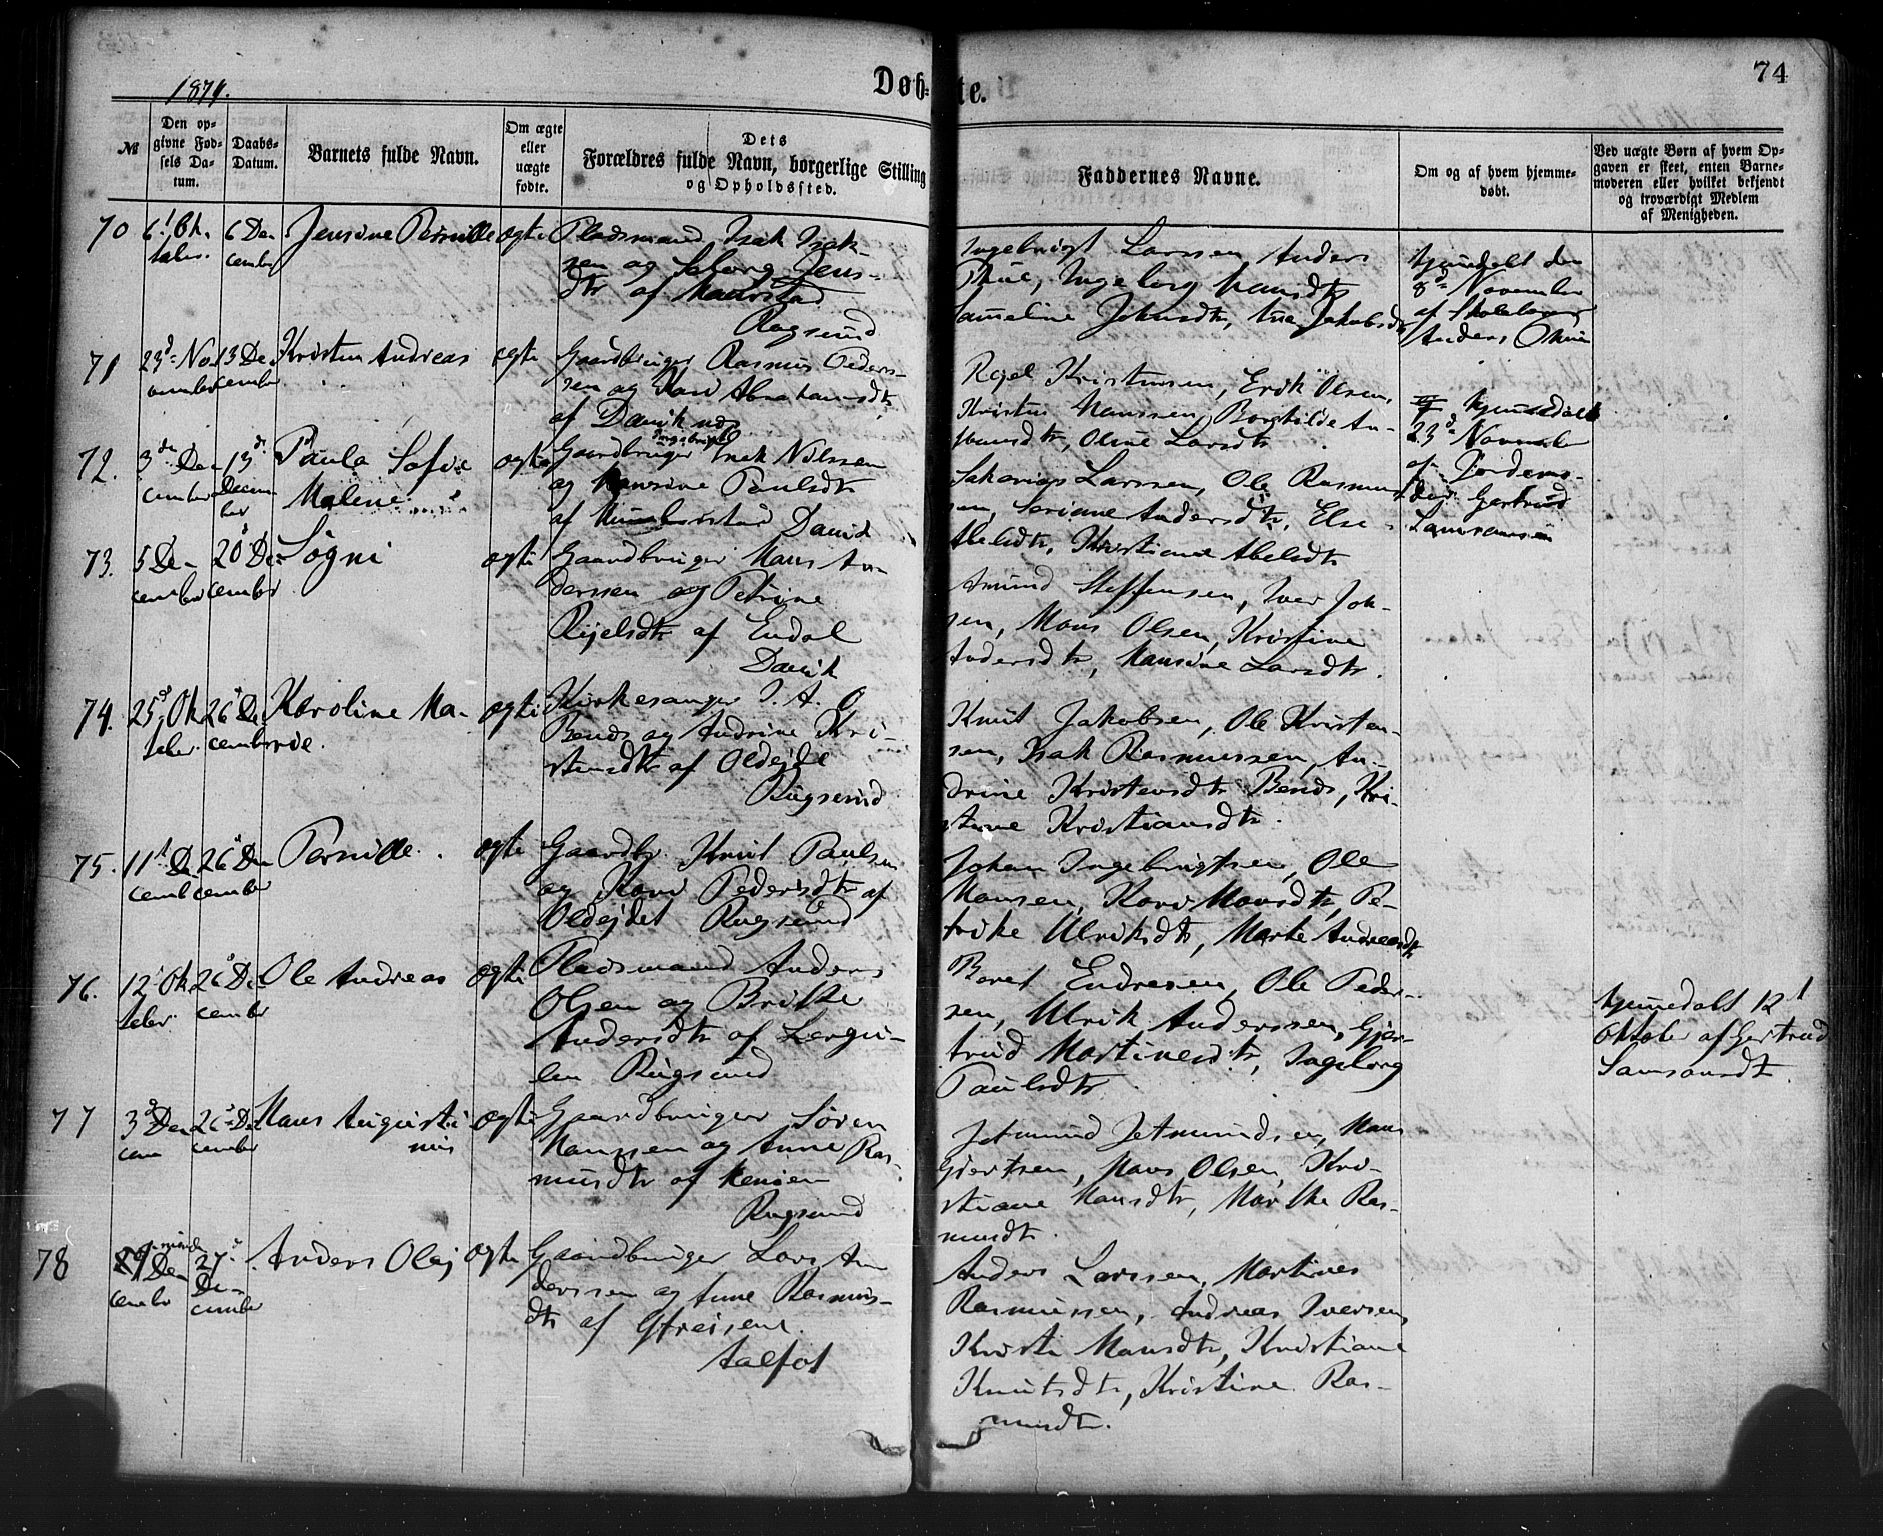 74
1874.
Døbte.
№
Den opgivne Fødsels Datum.
Daabs-Datum.
Barnets fulde Navn.
Om ægte eller uægte fødte.
Dets Forældres fulde Navn, borgerlige Stilling og Opholdssted.
Faddernes Navne.
Om og af hvem hjemmedøbt.
Ved uægte Børn af hvem Opgaven er skeet, enten Barnemoderen eller hvilket bekjendt og troværdigt Medlem af Menigheden.
70
6t Oktober.
6 December
Jensine Pernille
ægte
Pladsmand Isak Isaksen og Jens-
dtr af Maurstad
Rugsund
Ingebrigt Larssen, Anders
Thue, Ingeborg Hansdtr
Jakobsdtr
hjemdøbt den
8d November
af Skolelærer
Anders
71
23d November
13 December
Kristen Andreas
ægte
Gaardbruger Rasmus Peders-
sen og Kari Abrahamsdtr
af Davik
Kristensen, Erik Olsen,
Kristen Hanssen, Borghilde An-
Oline Larsdtr
hjemmedøbt
23d November
af Jordemo-
der Gertrud
72.
3die December
13d December
Paula Sofie
Malene
ægte
Gaardbruger Ingebrigt Nilssen
og Hansine Paulsdtr
af Davik
Sakarias Larssen, Ole Rasmus-
sen, Andersdtr, Else
Abelsdtr, Kristiane Abelsdtr
73.
5 December
20d December
Søgni
ægte
Gaardbruger Hans An-
derssen og Petrine
af Endal
Davik
Amund Steffensen, Iver Joh-
sen, Mons Olsen, Kristine
Andersdtr, Hansine Larsdtr.
74.
25d Oktober.
26d December
Karoline Ma-
rie.
ægte
Kirkesanger I. A. O
Bends og Andrine Kri-
stensdtr af Oldejde
Rugsund
Knut Jakobsen, Ole Kristen-
sen, Isak Rasmussen, An-
drine Kristensdtr Bends, Kri-
stine Kristiansdtr.
75.
11t December
26d December
Pernille.
ægte
Gaardbr. Knut Paulsen
og Kari Pedersdtr af
Oldejdet Rugsund
Johan Ingebrigtsen, Ole
Hansen, Kari Monsdtr, Pe-
trike Ulriksdtr, Marte Andreasdtr
76.
12t Oktober
26d December
Ole Andreas
ægte
Pladsmand Anders
Olsen og Brithe
Andersdtr af Lergu-
len Rugsund
Endresen, Ole Peder-
sen, Ulrik Anderssen, Gjer-
trud Martinesdtr, Ingeborg
Paulsdtr
hjemmedøbt 12t
Oktober af Gertrud
Samsonsdtr.
77
3d Decem
26d December
Hans Augusti-
nus
ægte
Gaardbruger Søren
Hanssen og Anne Ras-
musdtr af
Rugsund
Jetmund Jetmundsen, Hans
Gjertsen, Hans Olsen, Kri-
stiane Hansdtr, Marthe Ras-
musdtr.
78
December
27d
December
Anders Olaj
ægte
Gaardbruger Lars An-
derssen og Anne Rasmus-
dtr af
Aalfot
Anders Larssen, Martines
Rasmussen, Andreas Iversen,
Kristi Hansdtr, Kristiane
Knutsdtr, Kristine Ras-
musdtr.